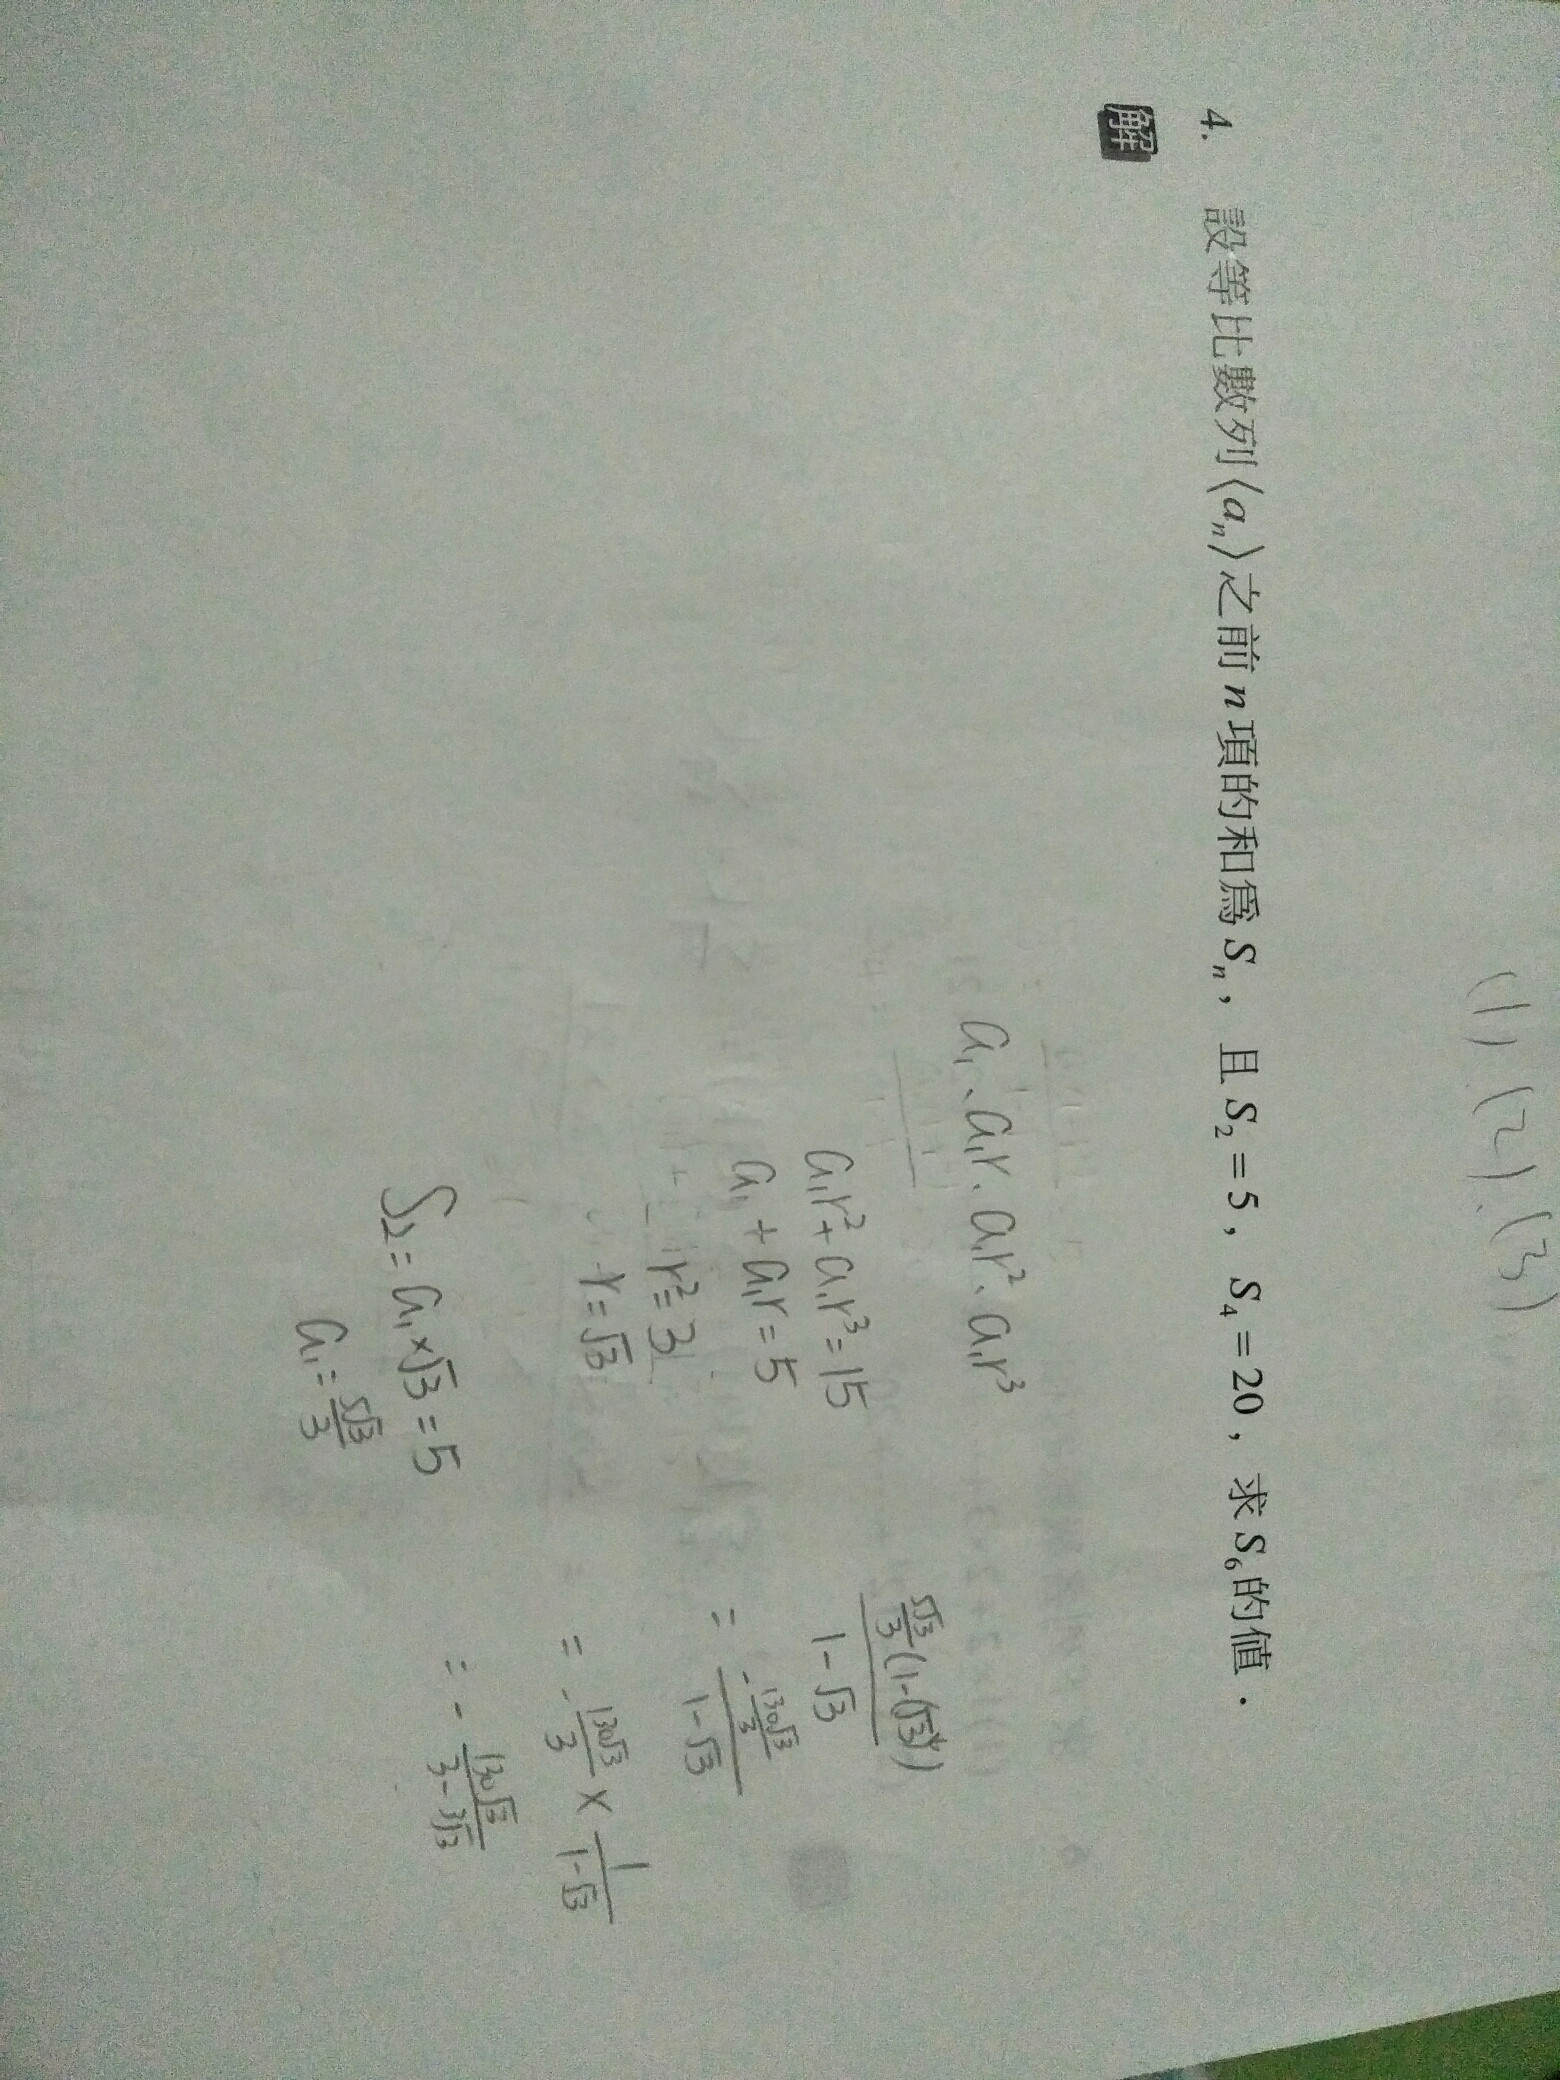 (1)、(2)、(3)
4. 設等比數列⟨aₙ⟩之前 n 項的和為 Sₙ，且 S₂=5，S₄=20，求 S₆ 的值．
解
a₁、a₁r、a₁r²、a₁r³
a₁r²+a₁r³=15
a₁+a₁r=5
r²=3
r=√3
S₂=a₁×√3=5
a₁=5√3/3
= -(130√3/3)/(1-√3)
= -130√3/3 × 1/(1-√3)
= -130√3/(3-3√3)